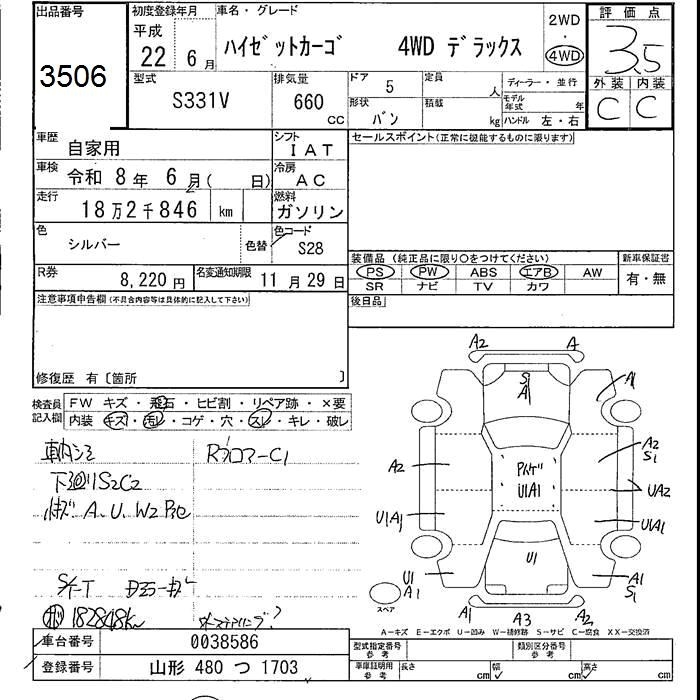 出品番号
3506
初度登録年月
平成
22 6月
車名・グレード
ハイゼットカーゴ 4WD デラックス
2WD
・
4WD
評価点
3.5
外装 内装
C C
型式
S331V
排気量
660 CC
ドア
5
形状
バン
定員
人
積載
kg
ディーラー・並行
モデル年式 年
ハンドル 左・右
車歴
自家用
シフト
IAT
車検
令和 8年 6月( 日)
冷房
AC
走行
18万2千846 km
燃料
ガソリン
色
シルバー
色替
色コード
S28
R券
8,220円
名変通知期限
11月29日
セールスポイント(正常に機能するものに限ります)
装備品(純正品に限り○をつけてください)
PS PW ABS エアB AW
SR ナビ TV カワ
新車保証書
有・無
後日品
注意事項申告欄(不具合内容等は具体的に記入して下さい)
修復歴 有〔箇所 〕
検査員記入欄
FW キズ・飛石・ヒビ割・リペア跡・×要
内装 キズ・汚レ・コゲ・穴・スレ・キレ・破レ
車内シミ
下廻リS2C2
A、U、W2
RブロワーC1
182848km
A2 A
S1
A1
A1
A2
A2
S1
Pハゲ
U1A1
UA2
U1A1
U1A1
U1
U1
A1
A1
S1
A1 A3 A2
スペア
A－キズ E－エクボ U－凹み W－補修跡 S－サビ C－腐食 XX－交換済
車台番号
0038586
登録番号
山形 480 つ 1703
型式指定番号
参考
類別区分番号
参考
車庫証明用
参考
長さ cm 幅 cm 高さ cm